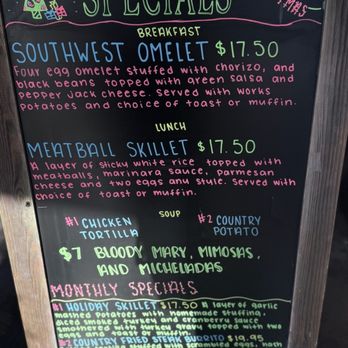 SPECIALS
BREAKFAST
SOUTHWEST OMELET $17.50
Four egg omelet stuffed with chorizo, and
black beans topped with green salsa and
pepper jack cheese. Served with works
potatoes and choice of toast or muffin.
LUNCH
MEATBALL SKILLET $17.50
A layer of sticky white rice topped with
meatballs, marinara sauce, parmesan
cheese and two eggs any style. Served with
choice of toast or muffin.
SOUP
#1 CHICKEN TORTILLA
#2 COUNTRY POTATO
$7 BLOODY MARY, MIMOSAS,
AND MICHELADAS
MONTHLY SPECIALS
#1 HOLIDAY SKILLET $17.50 A layer of garlic
mashed potatoes with homemade stuffing,
diced smoked turkey and cranberry sauce
smothered with turkey gravy topped with two
eggs and toast or muffin.
#2 COUNTRY FRIED STEAK BURRITO $19.95
stuffed with scrambled eggs, hash